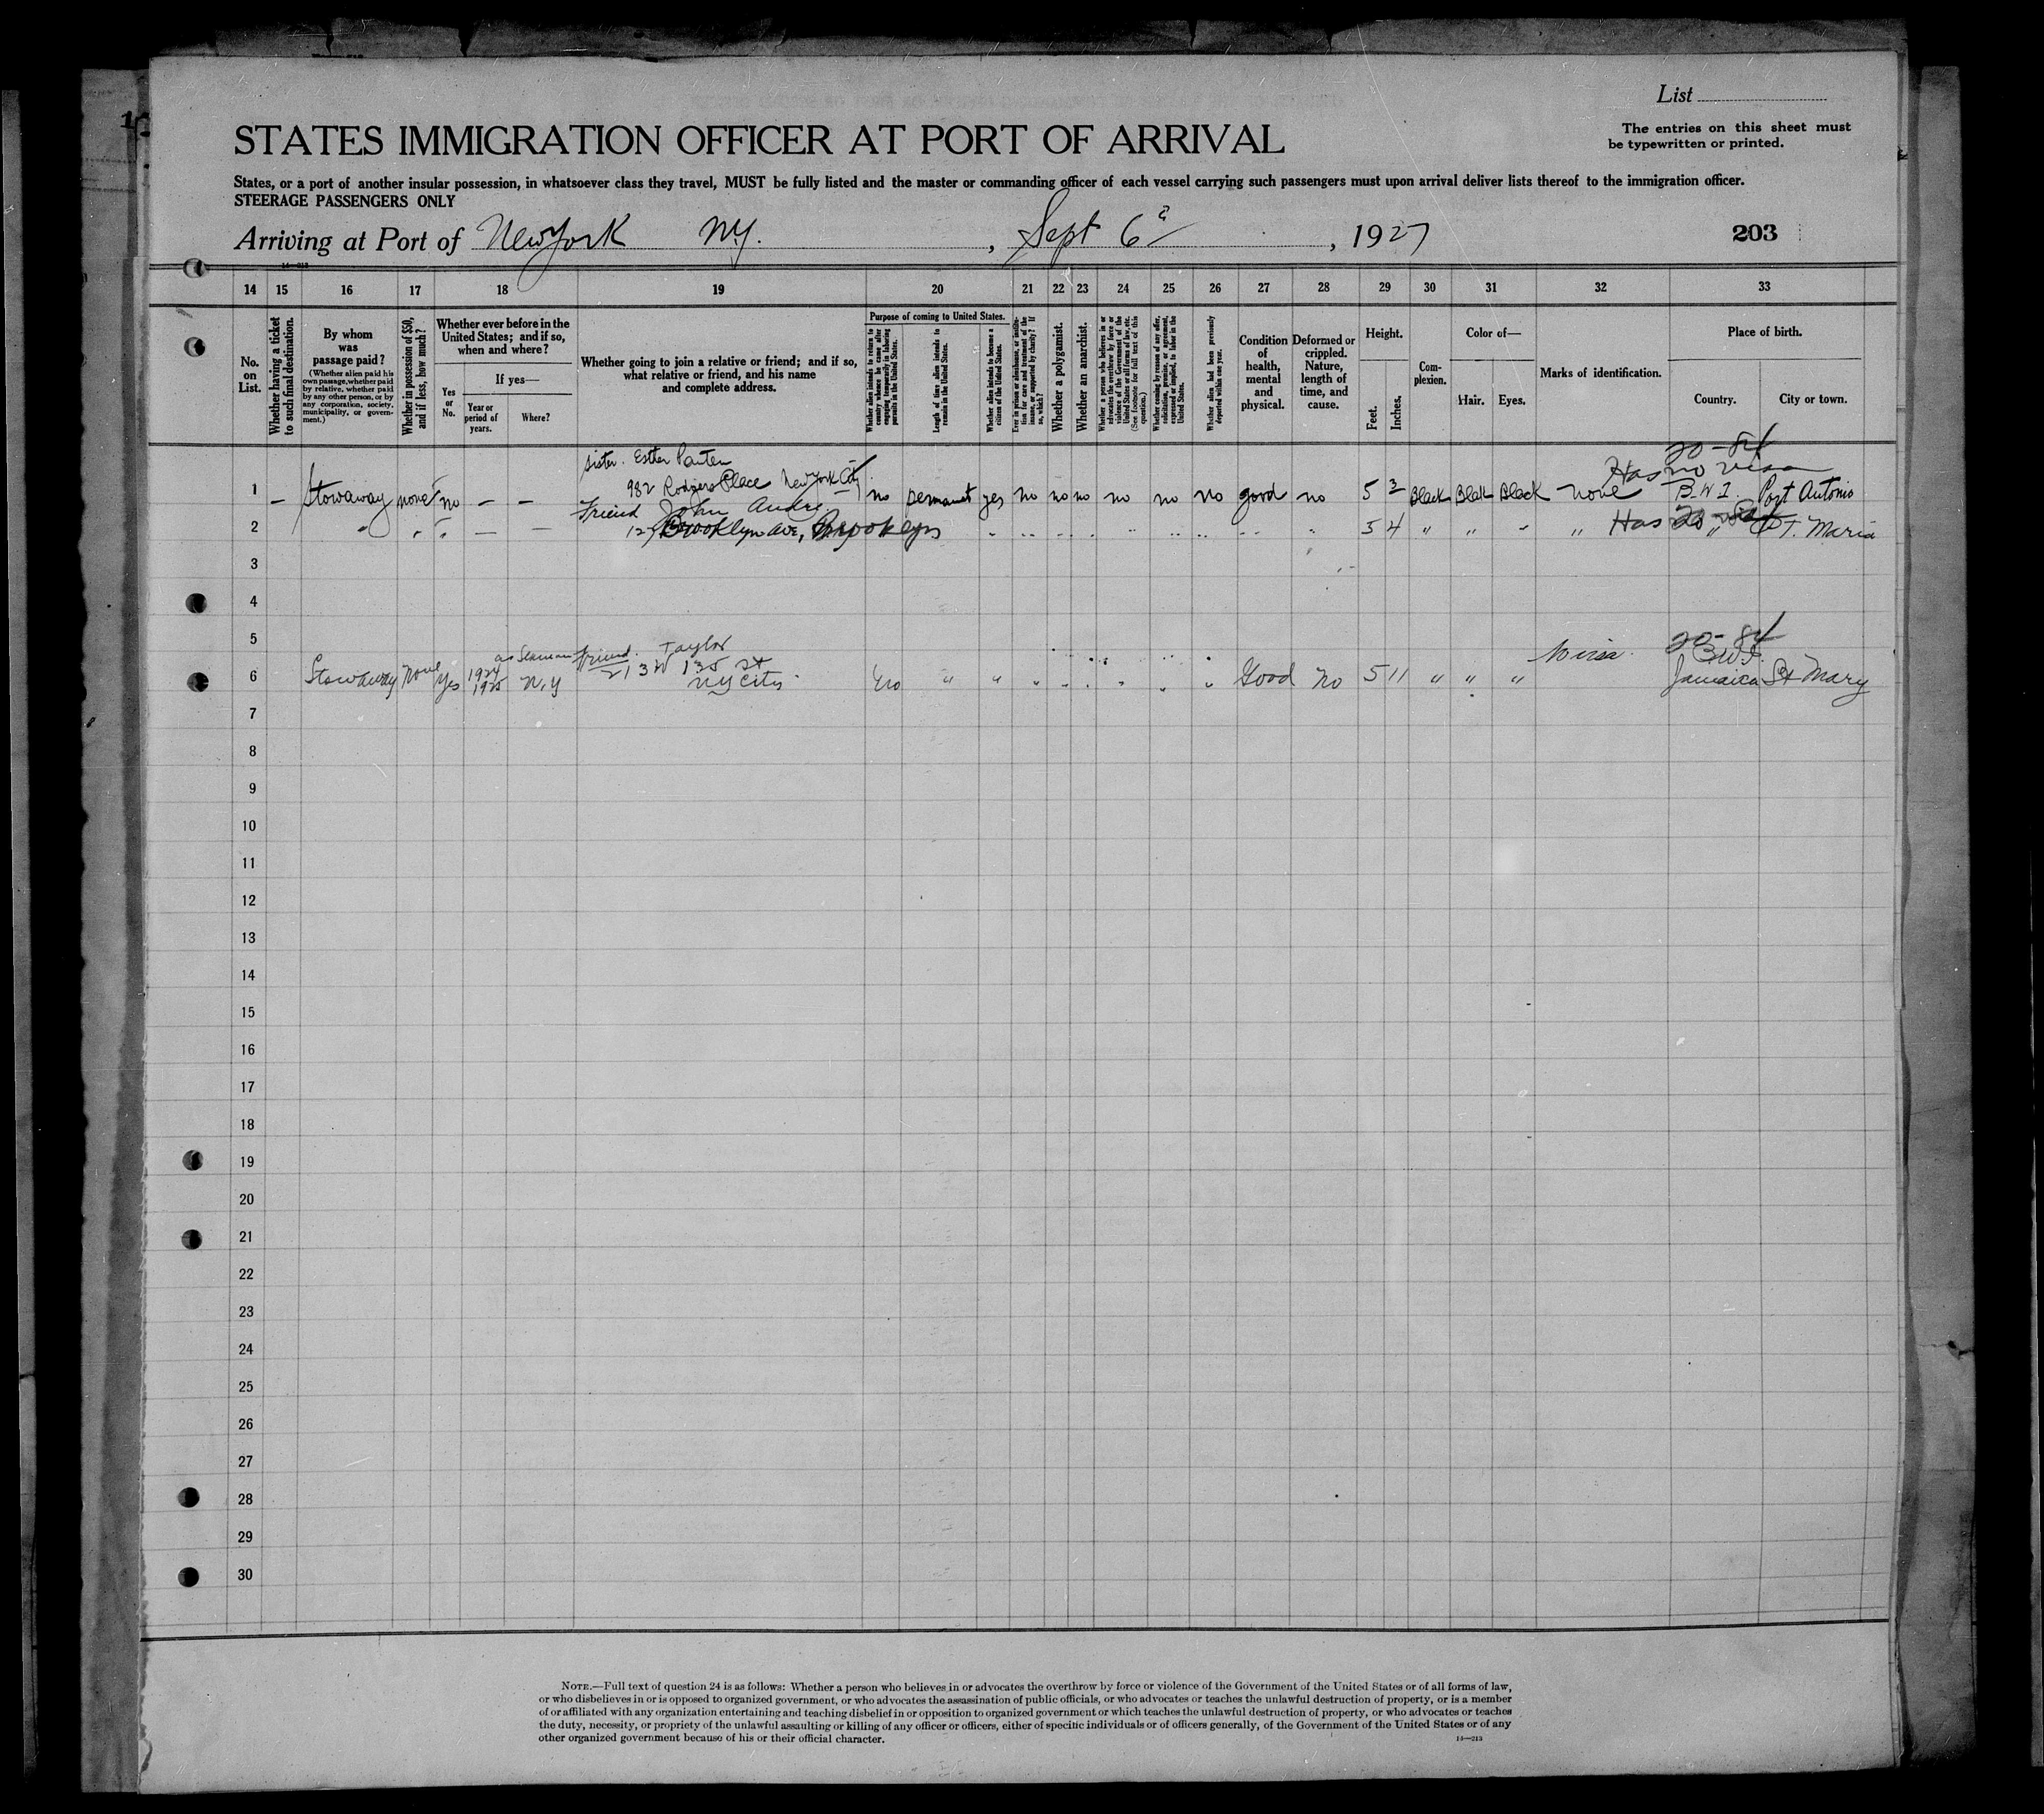 List
The entries on this sheet must
be typewritten or printed.
STATES IMMIGRATION OFFICER AT PORT OF ARRIVAL
States, or a port of another insular possession, in whatsoever class they travel, MUST be fully listed and the master or commanding officer of each vessel carrying such passengers must upon arrival deliver lists thereof to the immigration officer.
STEERAGE PASSENGERS ONLY
Arriving at Port of New York N.Y. , Sept 6 , 1927 203
14—213
14 15 16 17 18 19 20 21 22 23 24 25 26 27 28 29 30 31 32 33
No. on List.
Whether having a ticket to such final destination.
By whom was passage paid?
(Whether alien paid his own passage, whether paid by relative, whether paid by any other person, or by any corporation, society, municipality, or government.)
Whether in possession of $50, and if less, how much?
Whether ever before in the United States; and if so, when and where?
Yes or No.
If yes—
Year or period of years.
Where?
Whether going to join a relative or friend; and if so, what relative or friend, and his name and complete address.
Purpose of coming to United States.
Whether alien intends to return to country whence he came after engaging temporarily in laboring pursuits in the United States.
Length of time alien intends to remain in the United States.
Whether alien intends to become a citizen of the United States.
Ever in prison or almshouse, or institution for care and treatment of the insane, or supported by charity? If so, which?
Whether a polygamist.
Whether an anarchist.
Whether a person who believes in or advocates the overthrow by force or violence of the Government of the United States or all forms of law, etc. (See footnote for full text of this question.)
Whether coming by reason of any offer, solicitation, promise, or agreement, expressed or implied, to labor in the United States.
Whether alien had been previously deported within one year.
Condition of health, mental and physical.
Deformed or crippled. Nature, length of time, and cause.
Height.
Feet. Inches.
Complexion.
Color of—
Hair. Eyes.
Marks of identification.
Place of birth.
Country. City or town.
sister. Esther 20-84
982 Rodgers Place New York City Has no visa
1 – Stowaway none no – – no permanent yes no no no no no no good no 5 3 Black Black Black none B.W.I. Port Antonio
Friend John Andre
2 " " " — — 127 Brooklyn Ave, Brooklyn " " " " " " " " " 5 4 " " " " Has " PT. Maria
3
4
5 as Seaman friend. Taylor 20-84
1924 213 W 135 St No visa. B.W.I.
6 Stowaway None Yes 1925 N.Y NY City. No " " " " " " " " Good No 5 11 " " " Jamaica St Mary
7
8
9
10
11
12
13
14
15
16
17
18
19
20
21
22
23
24
25
26
27
28
29
30
NOTE.—Full text of question 24 is as follows: Whether a person who believes in or advocates the overthrow by force or violence of the Government of the United States or of all forms of law,
or who disbelieves in or is opposed to organized government, or who advocates the assassination of public officials, or who advocates or teaches the unlawful destruction of property, or is a member
of or affiliated with any organization entertaining and teaching disbelief in or opposition to organized government or which teaches the unlawful destruction of property, or who advocates or teaches
the duty, necessity, or propriety of the unlawful assaulting or killing of any officer or officers, either of specific individuals or of officers generally, of the Government of the United States or of any
other organized government because of his or their official character.
14—213